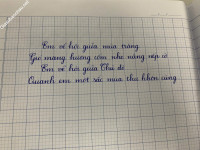 Em về hơi giữa mùa trăng
Gió mang hương cốm như nâng nếp cỏ
Em về hơi giữa Thủ đô
Quanh em một sắc mùa thu khôn cùng